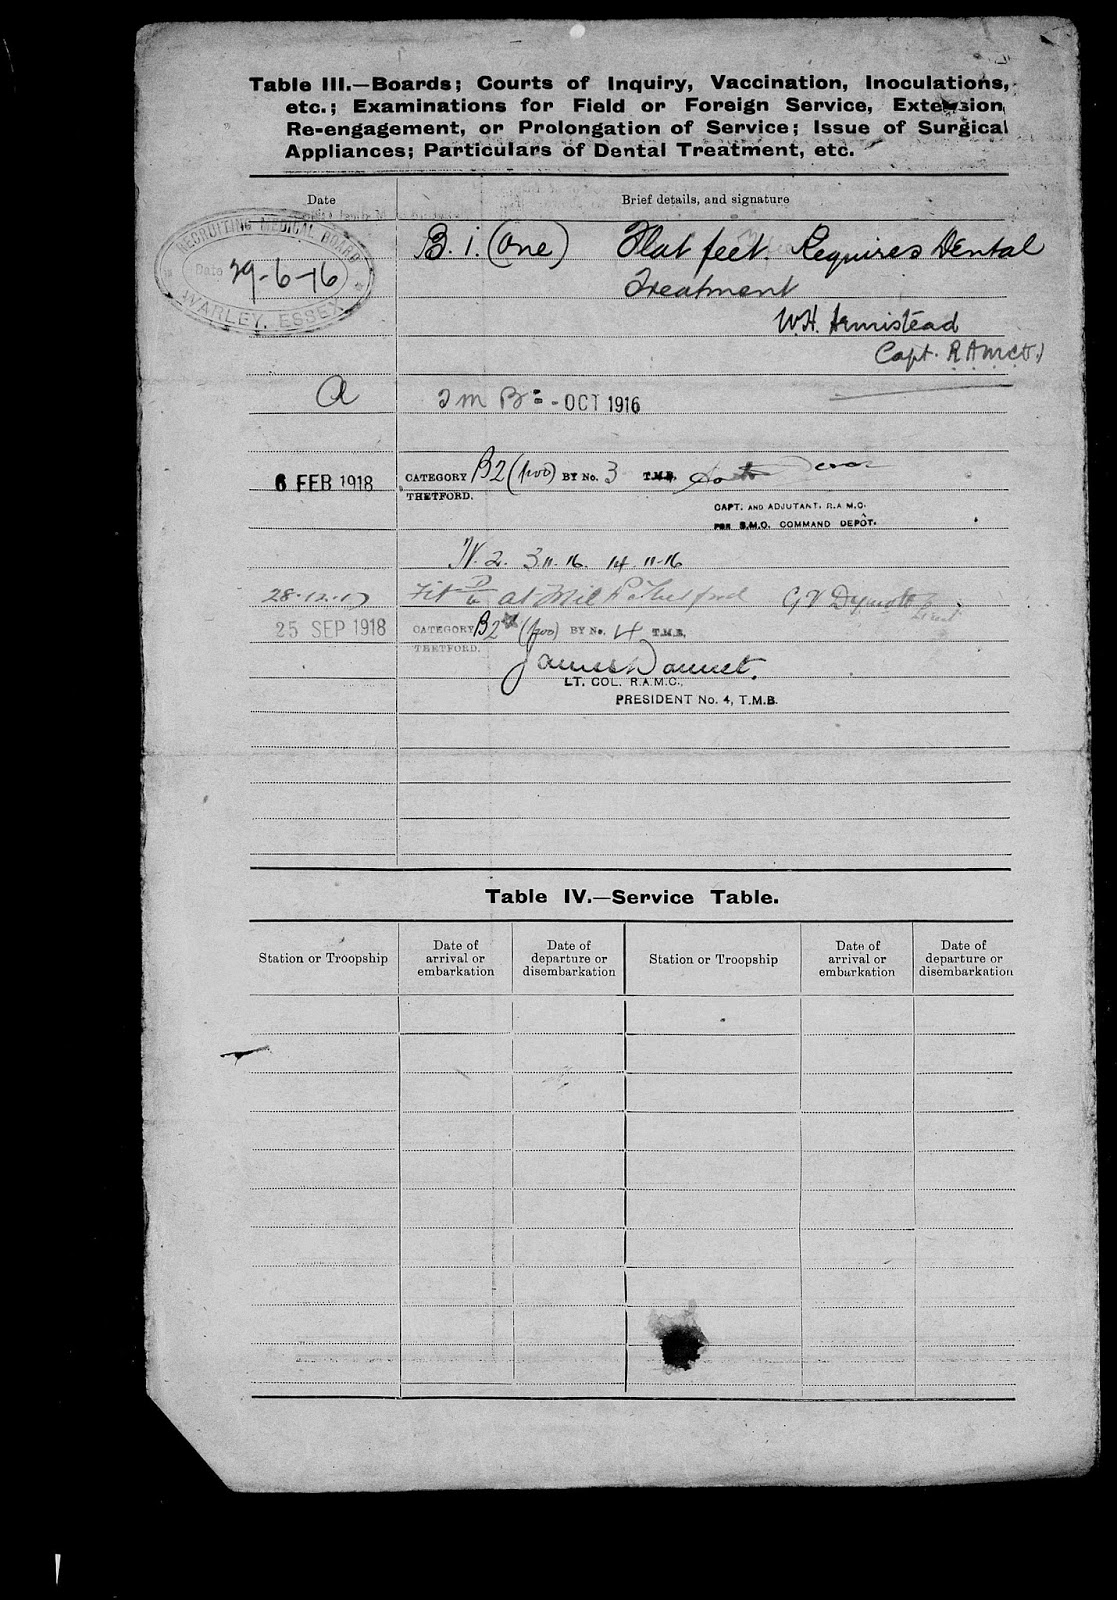 Table III.—Boards; Courts of Inquiry, Vaccination, Inoculations,
etc.; Examinations for Field or Foreign Service, Extension,
Re-engagement, or Prolongation of Service; Issue of Surgical
Appliances; Particulars of Dental Treatment, etc.
Date
Brief details, and signature
RECRUITING MEDICAL BOARD
Date 29-6-16
WARLEY, ESSEX
B. i. (One) Flat feet. Requires Dental
Treatment
W.H. Armistead
Capt. R.A.M.C.
A
OCT 1916
6 FEB 1918
CATEGORY B2 (two) BY No. 3 T.M.B.
THETFORD.
CAPT. AND ADJUTANT. R.A.M.C.
FOR S.M.O. COMMAND DEPÔT.
3.11.16. 14.11.16
28.12.17
Fit at Mil
25 SEP 1918
CATEGORY B2 (two) BY No. 4 T.M.B.
THETFORD.
LT. COL. R.A.M.C.,
PRESIDENT No. 4, T.M.B.
Table IV.—Service Table.
Station or Troopship
Date of
arrival or
embarkation
Date of
departure or
disembarkation
Station or Troopship
Date of
arrival or
embarkation
Date of
departure or
disembarkation